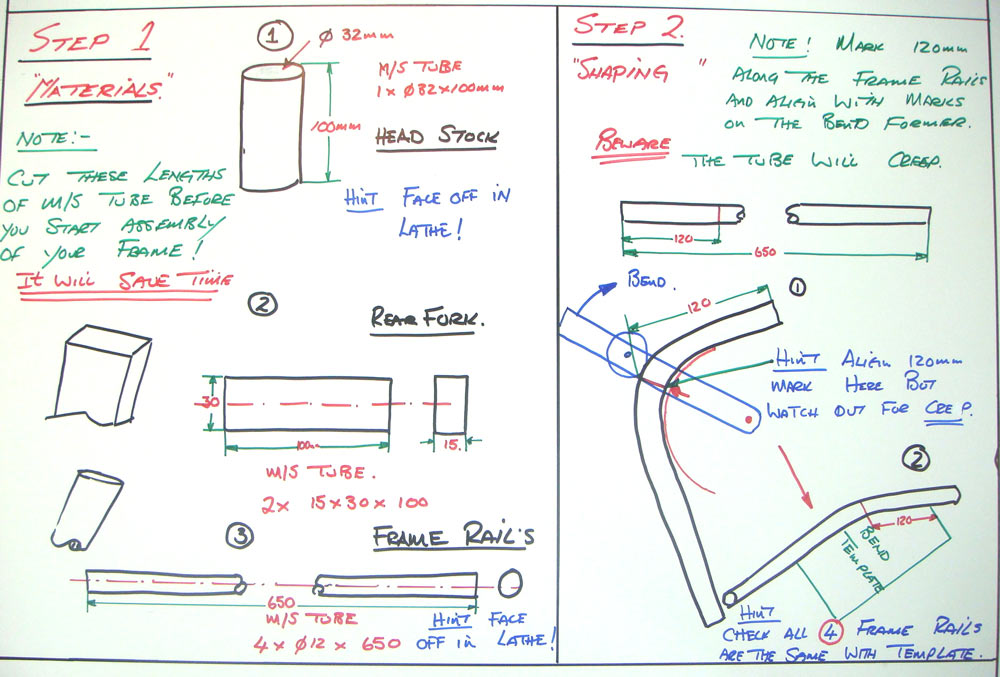 STEP 1
"MATERIALS."
NOTE:-
CUT THESE LENGTHS
OF M/S TUBE BEFORE
YOU START ASSEMBLY
OF YOUR FRAME!
IT WILL SAVE TIME
1
Ø 32mm
M/S TUBE
1 x Ø32x100mm
100mm
HEAD STOCK
HINT FACE OFF IN
LATHE!
2
REAR FORK.
30
100mm
15.
M/S TUBE.
2x 15x30x100
3
FRAME RAIL'S
650
M/S TUBE
4 x Ø12 x 650
HINT FACE
OFF IN LATHE!
STEP 2.
"SHAPING"
NOTE! MARK 120mm
ALONG THE FRAME RAILS
AND ALIGN WITH MARKS
ON THE BEND FORMER.
BEWARE
THE TUBE WILL CREEP.
120
650
BEND.
120
1
HINT ALIGN 120mm
MARK HERE BUT
WATCH OUT FOR CREEP.
2
120
BEND
TEMPLATE
HINT
CHECK ALL 4 FRAME RAILS
ARE THE SAME WITH TEMPLATE.